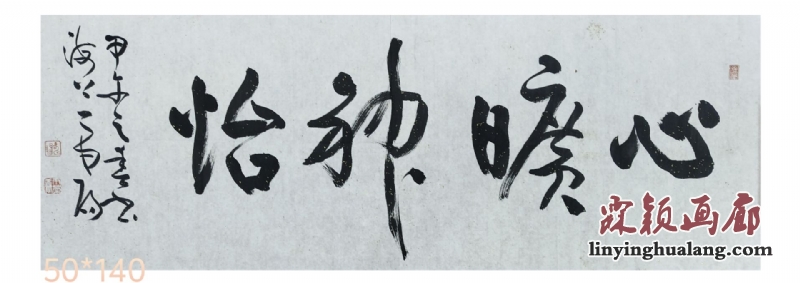 心曠神怡
甲午之春書
海上
霖颖画廊
linyinghualang.com
50*140